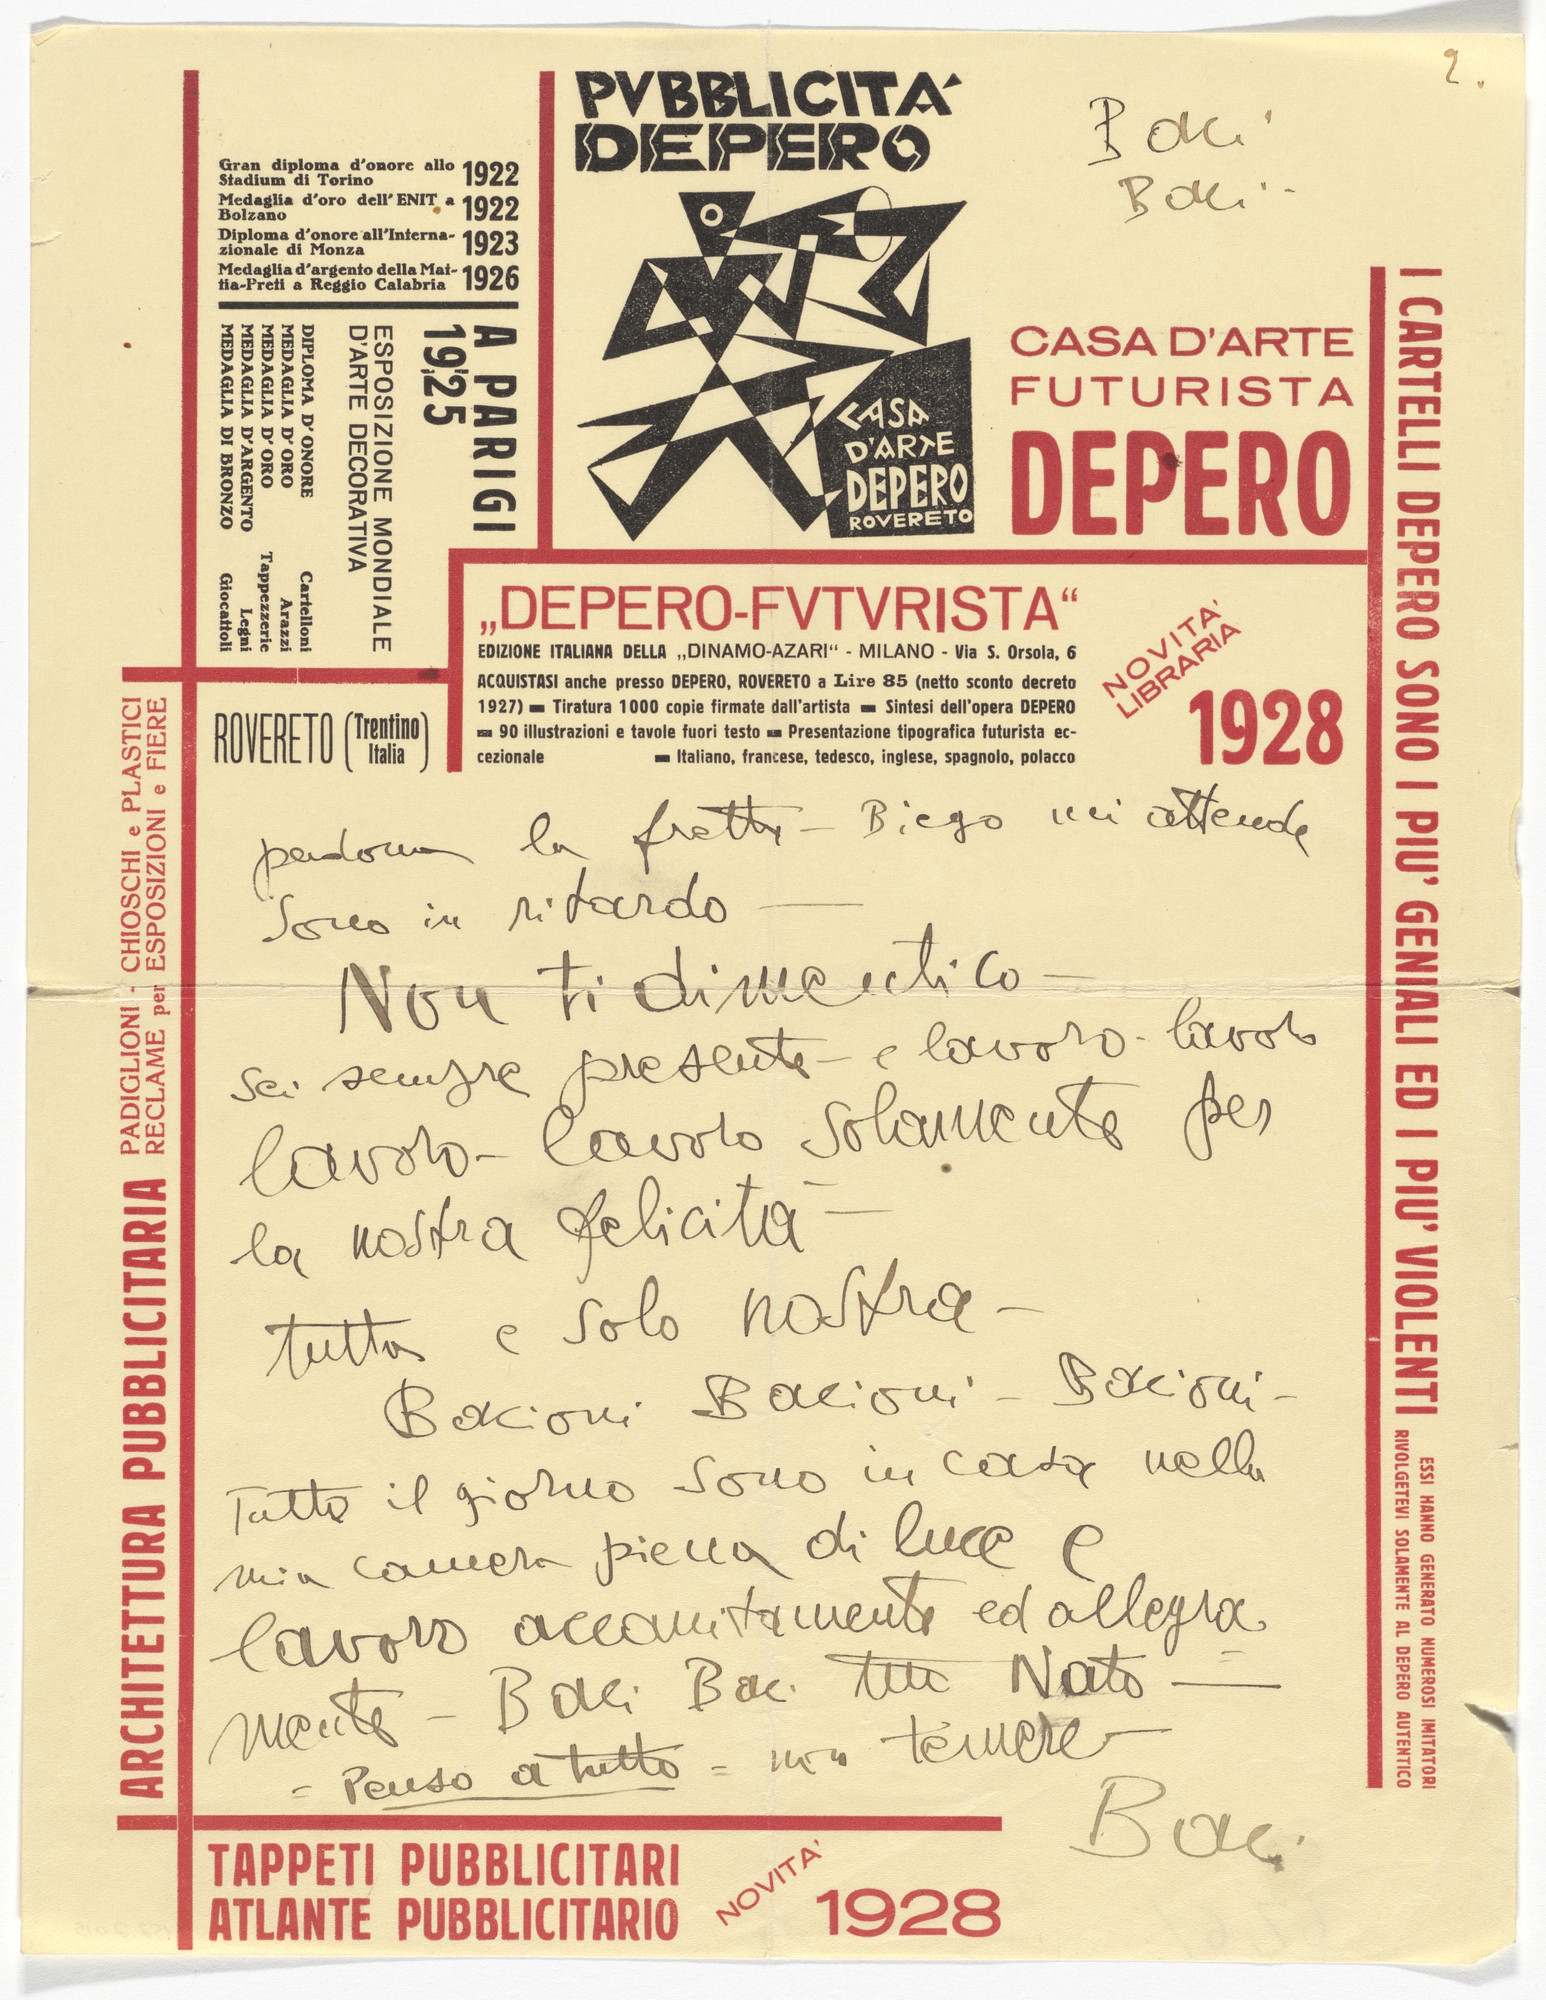 2.
Baci
Baci -
PVBBLICITÀ
DEPERO
Gran diploma d'onore allo
Stadium di Torino 1922
Medaglia d'oro dell'ENIT a
Bolzano 1922
Diploma d'onore all'Interna-
zionale di Monza 1923
Medaglia d'argento della Mat-
tia-Preti a Reggio Calabria 1926
A PARIGI
19,25
ESPOSIZIONE MONDIALE
D'ARTE DECORATIVA
DIPLOMA D'ONORE Cartelloni
MEDAGLIA D'ORO Arazzi
MEDAGLIA D'ORO Tappezzerie
MEDAGLIA D'ARGENTO Legni
MEDAGLIA DI BRONZO Giocattoli
CASA
D'ARTE
DEPERO
ROVERETO
CASA D'ARTE
FUTURISTA
DEPERO
„DEPERO-FVTVRISTA“
EDIZIONE ITALIANA DELLA „DINAMO-AZARI“ - MILANO - Via S. Orsola, 6
ACQUISTASI anche presso DEPERO, ROVERETO a Lire 85 (netto sconto decreto
1927) ▬ Tiratura 1000 copie firmate dall'artista ▬ Sintesi dell'opera DEPERO
▬ 90 illustrazioni e tavole fuori testo ▬ Presentazione tipografica futurista ec-
cezionale ▬ Italiano, francese, tedesco, inglese, spagnolo, polacco
NOVITA'
LIBRARIA
1928
ROVERETO (Trentino
Italia)
I CARTELLI DEPERO SONO I PIU' GENIALI ED I PIU' VIOLENTI
ESSI HANNO GENERATO NUMEROSI IMITATORI
RIVOLGETEVI SOLAMENTE AL DEPERO AUTENTICO
PADIGLIONI - CHIOSCHI e PLASTICI
RECLAME per ESPOSIZIONI e FIERE
ARCHITETTURA PUBBLICITARIA
perdona la fretta - Biego mi attende
sono in ritardo -
Non ti dimentico -
sei sempre presente - e lavoro - lavoro
lavoro - lavoro solamente per
la nostra felicità -
tutta e solo nostra -
Bacioni Bacioni - Bacioni -
Tutto il giorno sono in casa nella
mia camera piena di luce e
lavoro accanitamente ed allegra
mente - Baci Baci tuo Nato -
= Penso a tutto = non temere -
Baci
TAPPETI PUBBLICITARI
ATLANTE PUBBLICITARIO
NOVITA'
1928